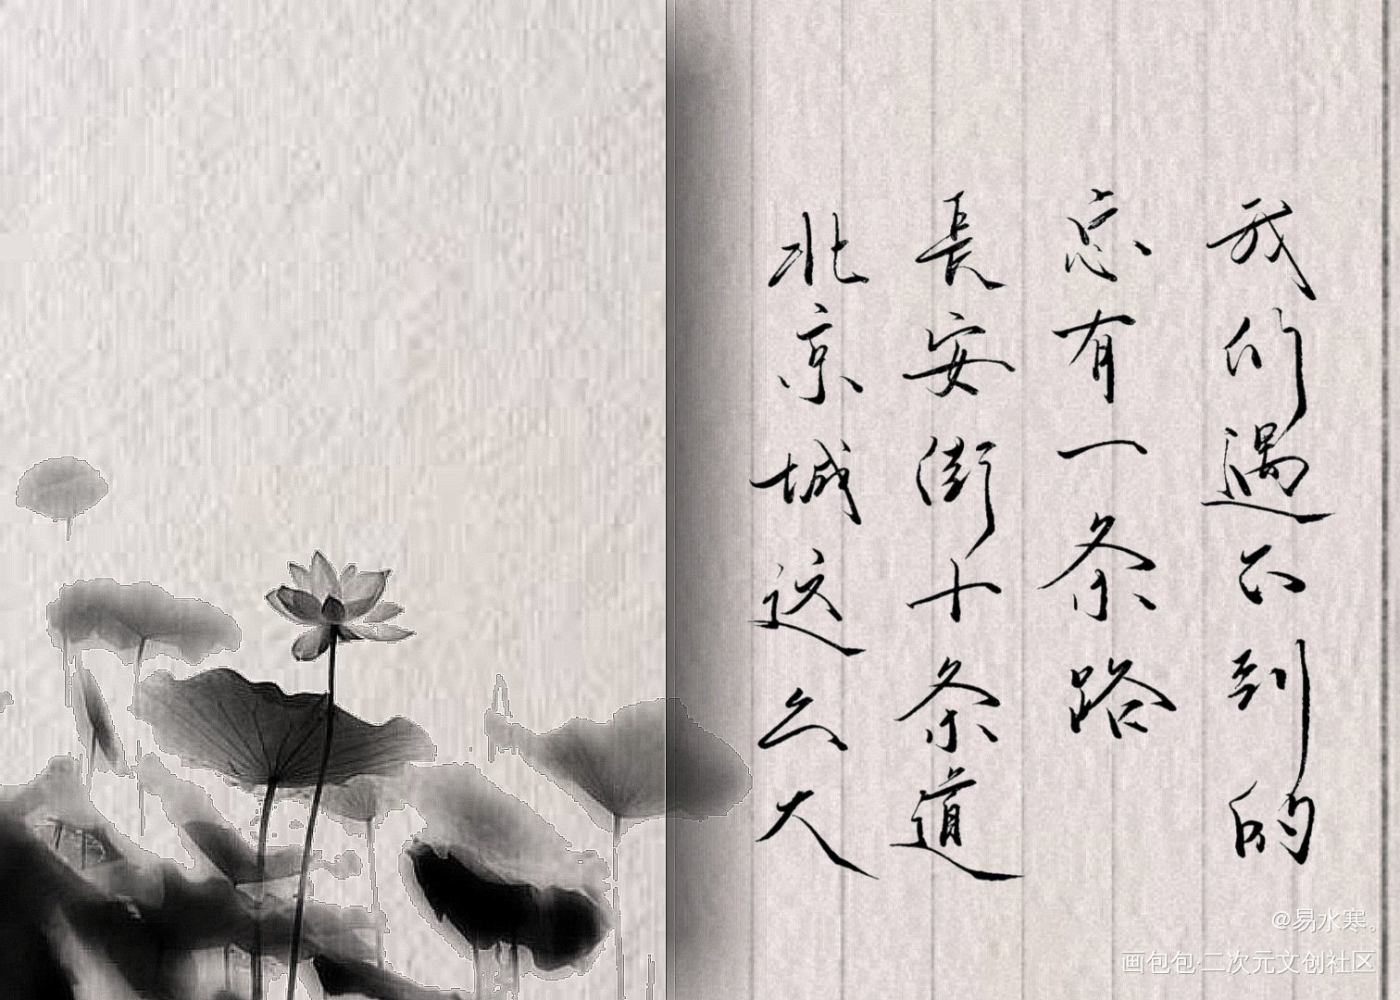 北京城这么大
長安街十条道
总有一条路
我们遇不到的
@易水寒。
画包包·二次元文创社区